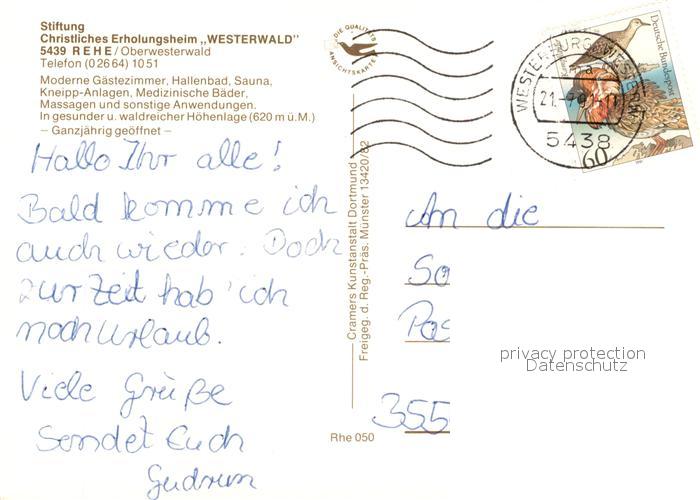 Stiftung
Christliches Erholungsheim „WESTERWALD"
5439 REHE/Oberwesterwald
Telefon (02664) 1051
Moderne Gästezimmer, Hallenbad, Sauna,
Kneipp-Anlagen, Medizinische Bäder,
Massagen und sonstige Anwendungen.
In gesunder u. waldreicher Höhenlage (620 m ü.M.)
– Ganzjährig geöffnet –
DIE QUALITÄTS
ANSICHTSKARTE
Hallo Ihr alle!
Bald komme ich
auch wieder. Doch
zur Zeit hab' ich
noch Urlaub.
Viele Grüße
Sendet Euch
Gudrun
Cramers Kunstanstalt Dortmund
Freigeg. d. Reg.-Präs. Münster 13420/82
Rhe 050
Deutsche Bundespost
60
WESTERBURG, WESTERW
21.
5438
An die
So
Pos
355
privacy protection
Datenschutz